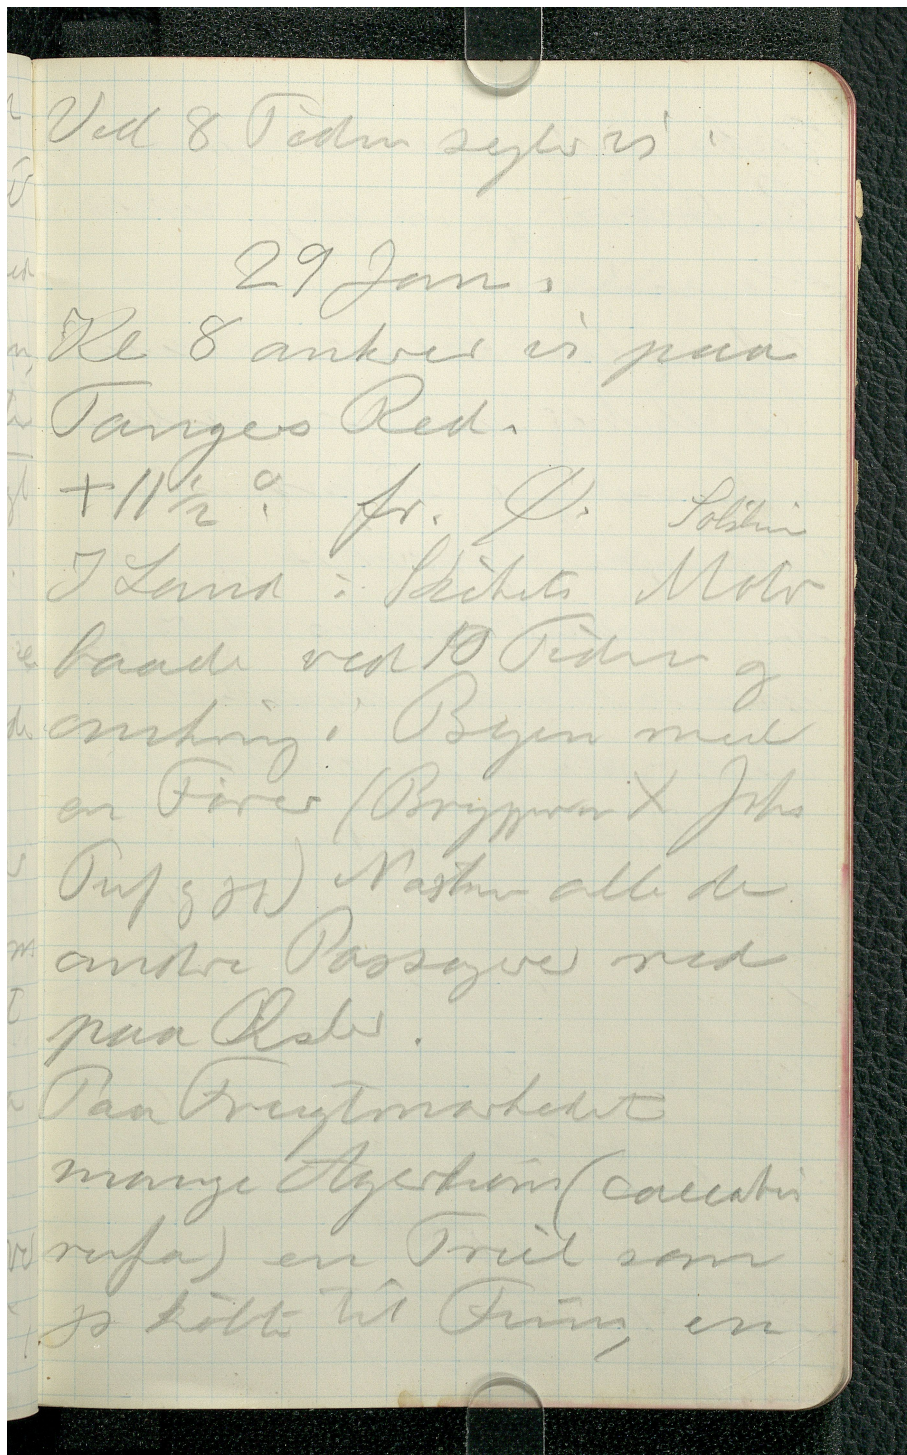 Ved 8 Tiden sejler vi.
29 Jan.
Kl 8 ankrer vi paa
Tangers Red.
+11½°. fr. Ø. Solskin
I Land i Skibets Motor
baade ved 10 Tiden og
omkring i Byen med
en Fører (Bryggman X Johs
og jeg) Næsten alle de
andre Passagerer red
paa Æsler.
Paa Frugtmarkedet
mange Agerhøns (caccabis
rufa) en Triel som
jeg købte til Finn, en